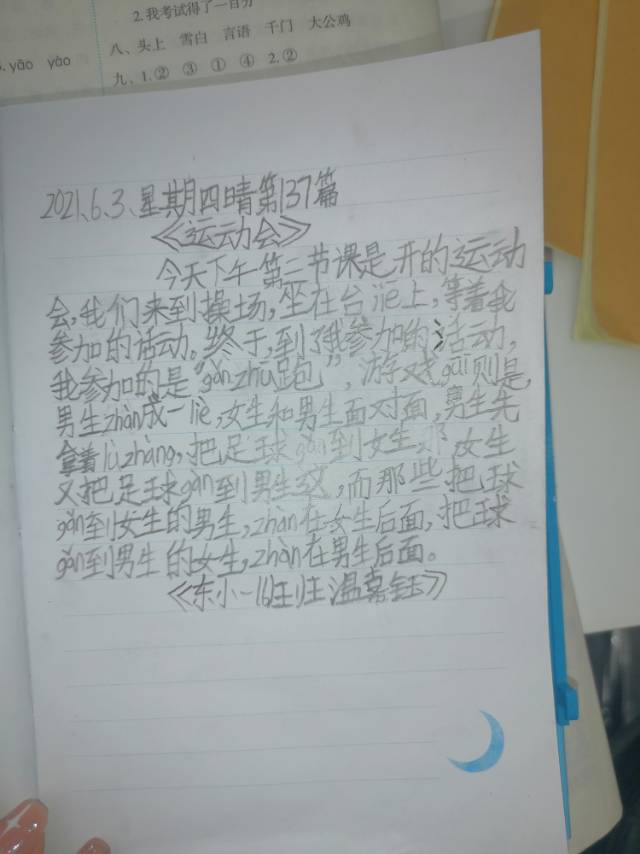 2.我考试得了一百分
八、头上 雪白 言语 千门 大公鸡
yāo yào
九、1.② ③ ① ④ 2.②
2021、6.3、星期四晴第137篇
《运动会》
今天下午第三节课是开的运动
会,我们来到操场,坐在台jiē上,等着我
参加的活动。终于,到了我参加的活动,
我参加的是“gǎn zhū跑”,游戏guī则是,
男生zhàn成一liè,女生和男生面对面,男生先
拿着lù zhàng,把足球gǎn到女生那,女生
又把足球gǎn到男生这,而那些把球
gǎn到女生的男生,zhàn在女生后面,把球
gǎn到男生的女生,zhàn在男生后面。
《东小一16班温嘉钰》